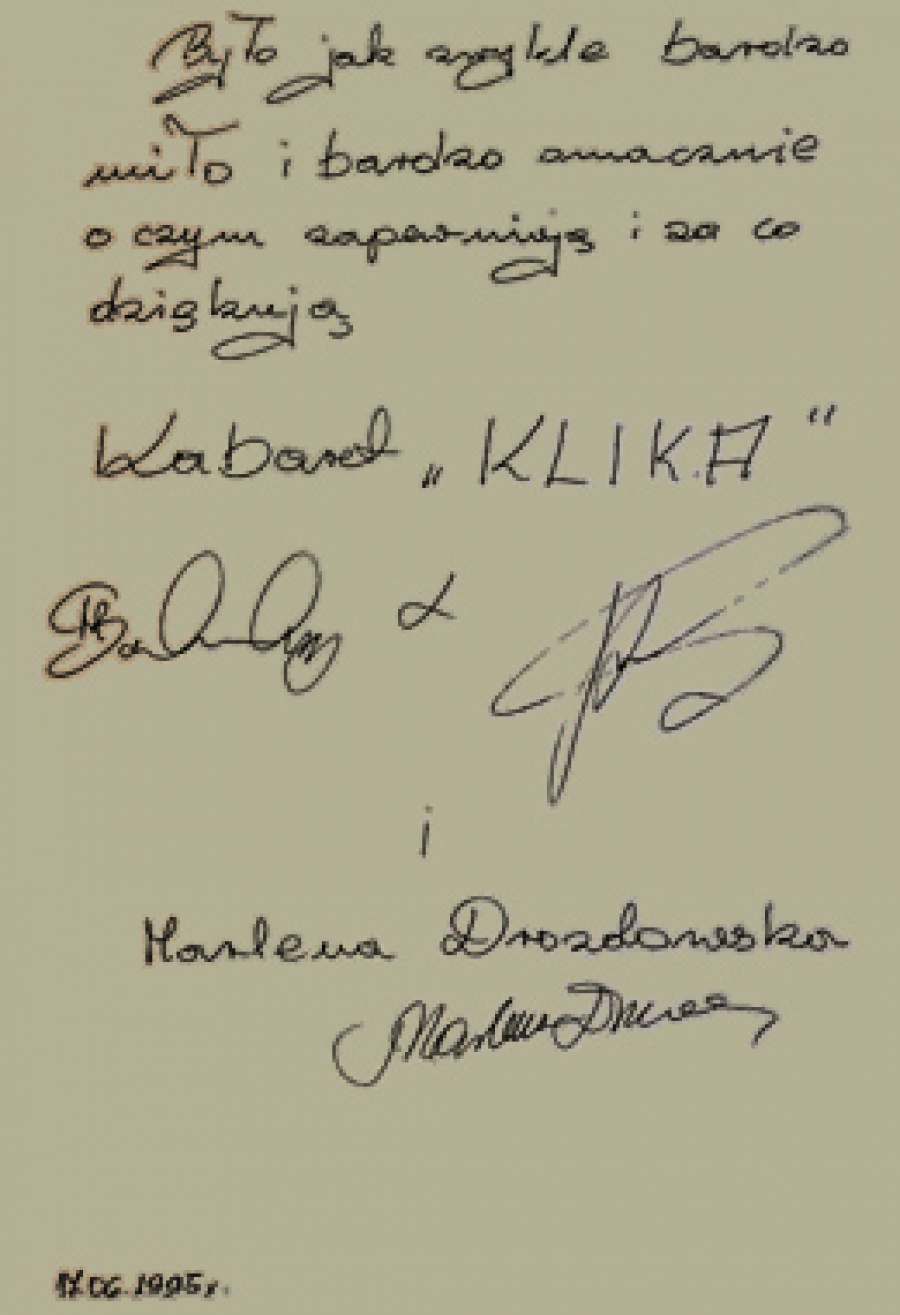 Było jak zwykle bardzo
miło i bardzo smacznie
o czym zapewniają i za co
dziękują
Kabaret „KLIKA"
&
i
Marlena Drozdowska
Marlena
06.1995r.